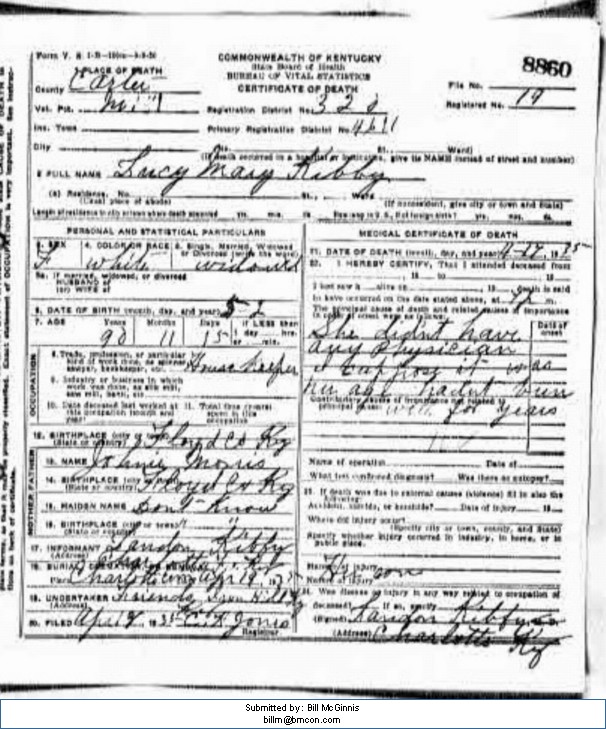 Form V. S. 1-B
COMMONWEALTH OF KENTUCKY
State Board of Health
BUREAU OF VITAL STATISTICS
CERTIFICATE OF DEATH
8860
PLACE OF DEATH
County Carter
File No.
Vot. Pct. Mill
Registration District No. 320
Registered No. 19
Inc. Town
Primary Registration District No. 4611
City No. St., Ward)
(If death occurred in a hospital or institution, give its NAME instead of street and number)
2 FULL NAME Lucy Mary Kibby
(a) Residence. No. St., Ward
(Usual place of abode) (If nonresident, give city or town and State)
Length of residence in city or town where death occurred yrs. mos. ds. How long in U. S., if of foreign birth? yrs. mos. ds.
PERSONAL AND STATISTICAL PARTICULARS
3. SEX 4. COLOR OR RACE 5. Single, Married, Widowed
or Divorced (write the word)
F white widowed
5a. If married, widowed, or divorced
HUSBAND of
(or) WIFE of
6. DATE OF BIRTH (month, day, and year) 5-2
7. AGE Years Months Days If LESS than
1 day, hrs.
or min.
90 11 15
OCCUPATION
8. Trade, profession, or particular
kind of work done, as spinner,
sawyer, bookkeeper, etc. House keeper
9. Industry or business in which
work was done, as silk mill,
saw mill, bank, etc.
10. Date deceased last worked at 11. Total time (years)
this occupation (month and spent in this
year) occupation
12. BIRTHPLACE (city or town) Floyd Co Ky
(State or country)
FATHER
13. NAME Johnie Morris
14. BIRTHPLACE (city or town) Floyd Co Ky
(State or country)
MOTHER
15. MAIDEN NAME Dont Know
16. BIRTHPLACE (city or town) "
(State or country)
17. INFORMANT Landon Kibby
(Address)
18. BURIAL
Place Charlotte
19. UNDERTAKER Friends
(Address)
20. FILED
Jones
Registrar
MEDICAL CERTIFICATE OF DEATH
21. DATE OF DEATH (month, day, and year) 4-17 1935
22. I HEREBY CERTIFY, That I attended deceased from
19 to 19
I last saw h alive on 19 death is said
to have occurred on the date stated above, at
The principal cause of death and related causes of importance
in order of onset were as follows:
Date of
onset
She didnt have
any physician
I suppose it was
her age hadnt been
Contributory causes of importance not related to
principal cause:
well for years
Name of operation Date of
What test confirmed diagnosis? Was there an autopsy?
23. If death was due to external causes (violence) fill in also the
following:
Accident, suicide, or homicide? Date of injury 19
Where did injury occur?
(Specify city or town, county, and State)
Specify whether injury occurred in industry, in home, or in
public place.
Manner of injury
Nature of injury
24. Was disease or injury in any way related to occupation of
deceased? If so, specify
(Signed) Landon Kibby
(Address) Charlotte Ky
Submitted by: Bill McGinnis
billm@bmcon.com